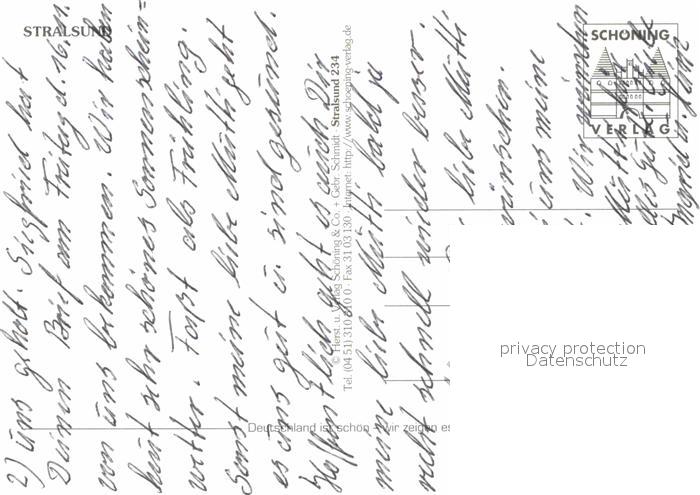 STRALSUND
SCHÖNING
VERLAG
2) uns geholt. Siegfried hat
Deinen Brief am Freitag d. 16.11.
von uns bekommen. Wir haben
heut sehr schönes Sonnenschein=
wetter. Fast als Frühling.
Sonst meine liebe Mutti geht
es uns gut u. sind gesund.
Hoffentlich geht es auch Dir
meine liebe Mutti bald ja
recht schnell wieder besser.
liebe Mutti
wünschen.
uns mein
Wir wünschen
Mutti
alles Gute
© Herst. u. Verlag Schöning & Co. + Gebr. Schmidt · Stralsund 234
Tel. (04 51) 310 310 0 · Fax 31 03 130 · Internet: http://www.schoening-verlag.de
Deutschland ist schön - wir zeigen es
privacy protection
Datenschutz